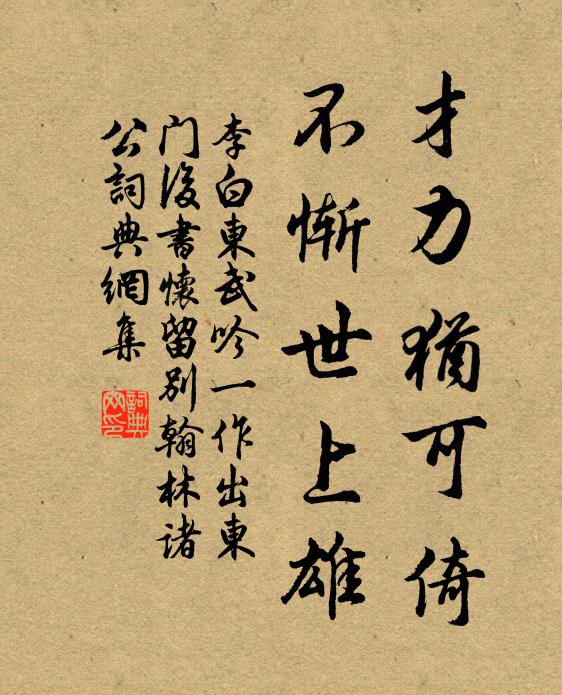 才力猶可倚
不慚世上雄
李白東武吟一作出東
门後書懷留別翰林诸
公詞典網集
詞典
网印